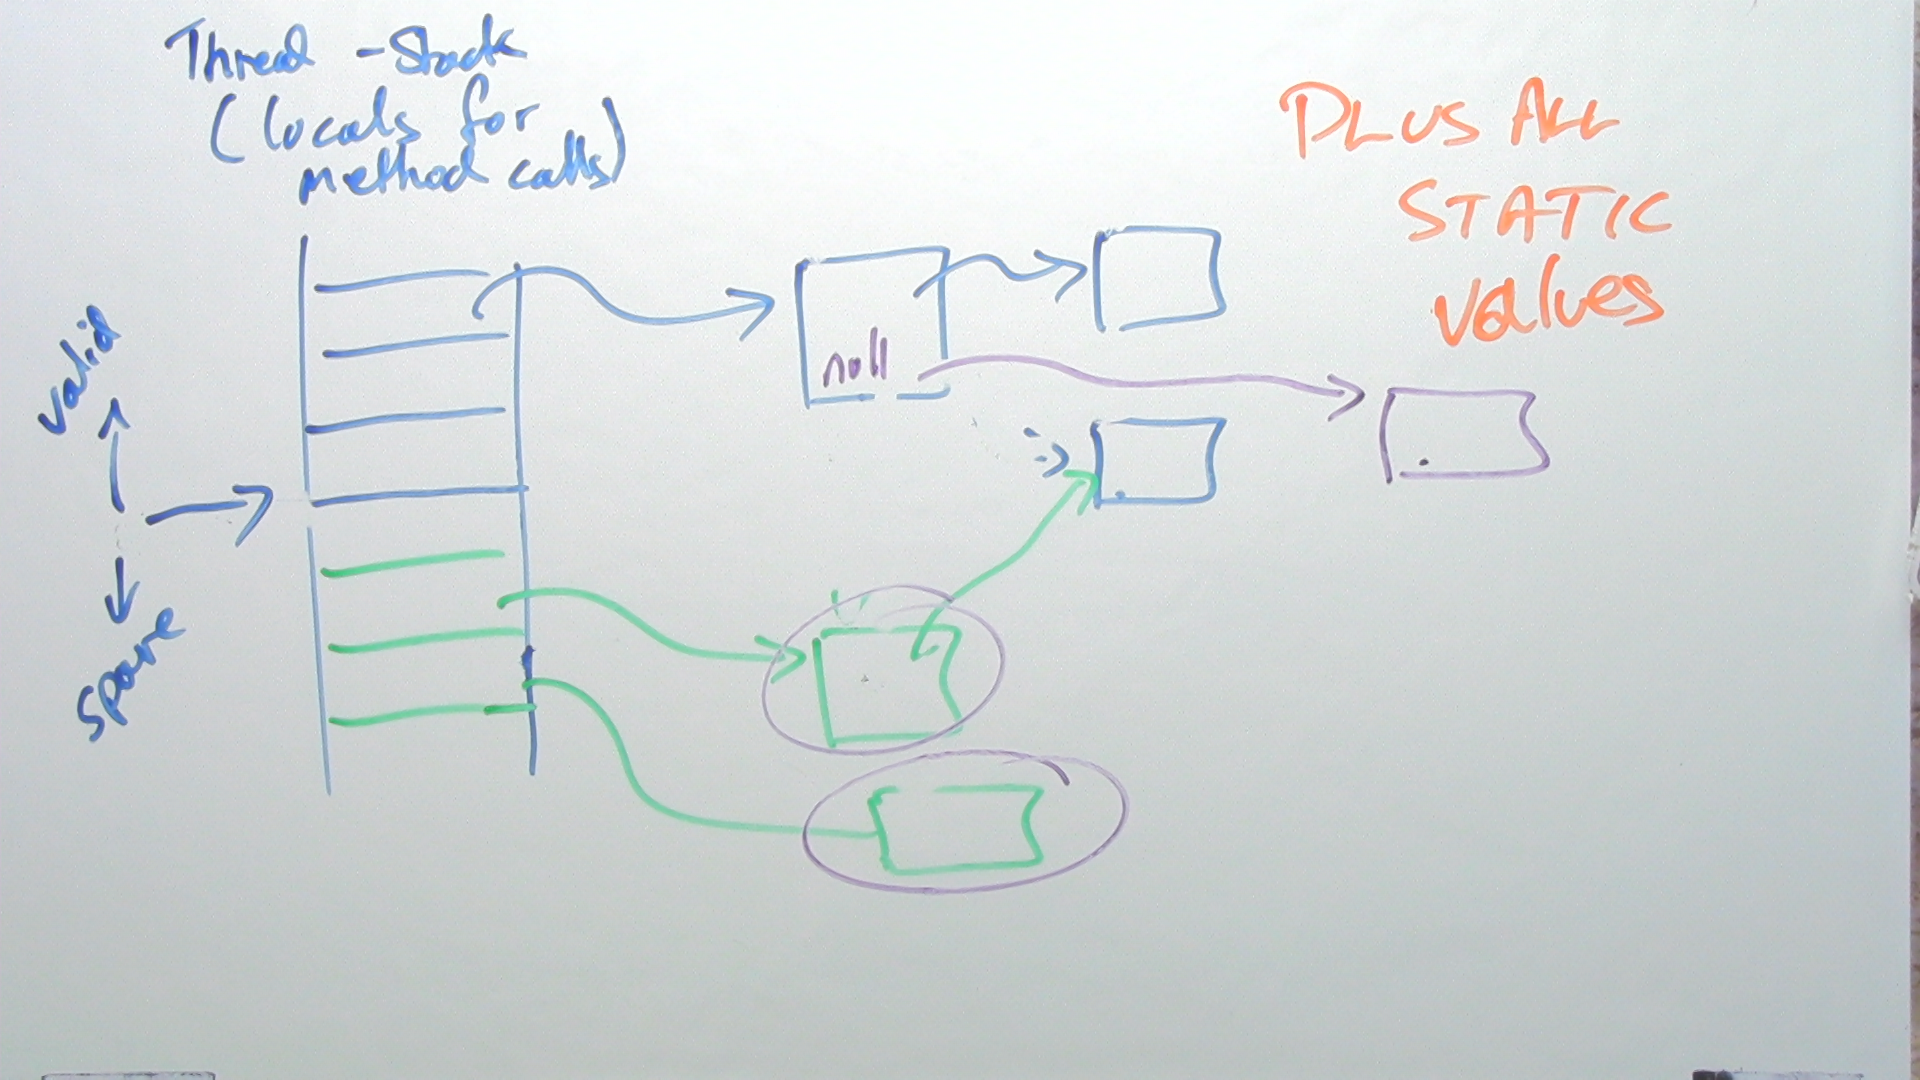 Thread - Stack
(locals for
method calls)
PLUS ALL
STATIC
values
valid
null
spare